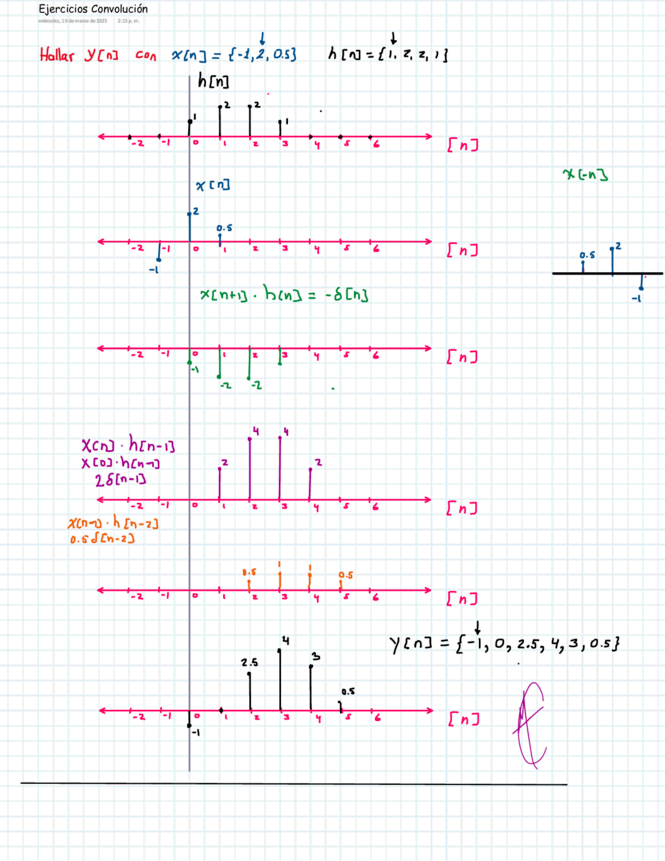 Ejercicios Convolución
miércoles, 19 de marzo de 2025 2:15 p. m.
Hallar y[n] con x[n] = {-1, 2, 0.5} h[n] = {1, 2, 2, 1}
h[n]
1 2 2 1
-2 -1 0 1 2 3 4 5 6 [n]
x[-n]
x[n]
2
0.5
-1
-2 -1 0 1 2 3 4 5 6 [n]
0.5 2
-1
x[n+1] · h[n] = -δ[n]
-2 -1 0 1 2 3 4 5 6 [n]
-1
-2 -2
x[n] · h[n-1]
x[0] · h[n-1]
2δ[n-1]
2 4 4 2
-2 -1 0 1 2 3 4 5 6 [n]
x[n-1] · h[n-2]
0.5δ[n-2]
0.5 1 1 0.5
-2 -1 0 1 2 3 4 5 6 [n]
y[n] = {-1, 0, 2.5, 4, 3, 0.5}
2.5 4 3 0.5
-2 -1 0 1 2 3 4 5 6 [n]
-1